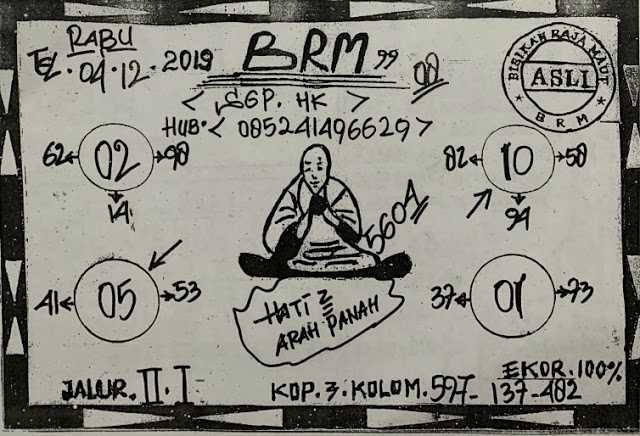 RABU
TGL. 04.12.2019
BRM 99
00
< SGP. HK >
HUB. < 085241496629 >
BISIKAN RAJA MAUT
ASLI
B R M
62 02 90
14
82 10 50
94
41 05 53
5604
37 01 73
HATI 2
ARAH PANAH
JALUR. II. I
KOP. 3. KOLOM. 597- 137-402
EKOR. 100%